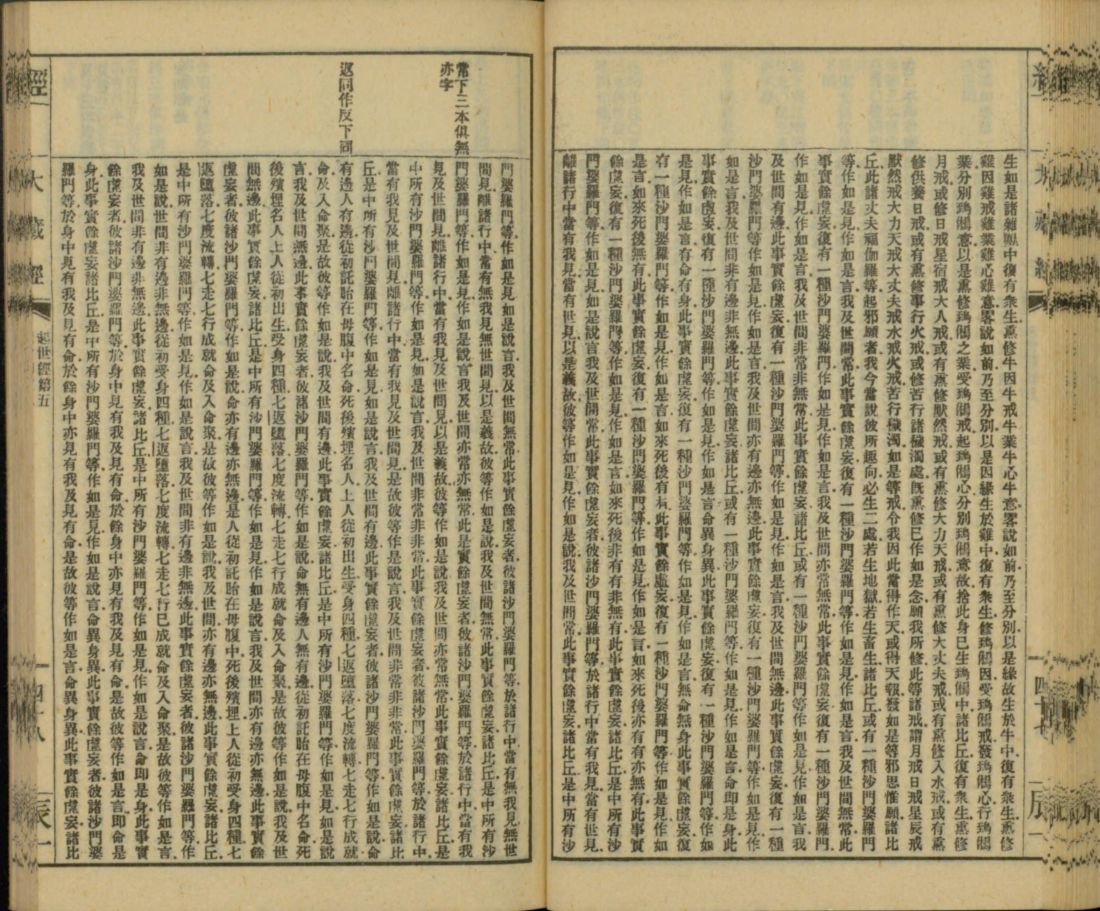 生如是諸雜獸中復有衆生熏修牛因牛戒牛業牛心牛意畧說如前乃至分別以是緣故生於牛中復有衆生熏修
雞因雞戒雞業雞心雞意畧說如前乃至分別以是因緣生於雞中復有衆生修鵄鵂因受鵄鵂戒發鵄鵂心行鵄鵂
業分別鵄鵂意以是熏修鵄鵂之業受鵄鵂戒起鵄鵂心分別鵄鵂意故捨此身已生鵄鵂中諸比丘復有衆生熏修
月戒或修日戒星宿戒大人戒或有熏修默然戒或有熏修大力天戒或有熏修大丈夫戒或有熏修入水戒或有熏
修供養日戒或有熏修事行火戒或修苦行諸穢濁處旣熏修已作如是念願我所修此等諸戒謂月戒日戒星辰戒
默然戒大力天戒大丈夫戒水戒火戒苦行穢濁如是等戒令我因此當得作天或得天報發如是等邪思惟願諸比
丘此諸丈夫福伽羅等起邪願者我今當說彼所趣向必生二處若生地獄若生畜生諸比丘或有一種沙門婆羅門
等作如是見作如是言我及世間常此事實餘虛妄復有一種沙門婆羅門等作如是見作如是言我及世間無常此
事實餘虛妄復有一種沙門婆羅門作如是見作如是言我及世間亦常無常此事實餘虛妄復有一種沙門婆羅門
作如是見作如是言我及世間非常非無常此事實餘虛妄諸比丘或有一種沙門婆羅門等作如是見作如是言我
及世間有邊此事實餘虛妄復有一種沙門婆羅門等作如是見作如是言我及世間無邊此事實餘虛妄復有一種
沙門婆羅門等作如是見作如是言我及世間亦有邊亦無邊此事實餘虛妄復有一種沙門婆羅門等作如是見作
如是言我及世間非有邊非無邊此事實餘虛妄諸比丘或有一種沙門婆羅門等作如是見作如是言命即是身此
事實餘虛妄復有一種沙門婆羅門等作如是見作如是言命異身異此事實餘虛妄復有一種沙門婆羅門等作如
是見作如是言有命有身此事實餘虛妄復有一種沙門婆羅門等作如是見作如是言無命無身此事實餘虛妄復
有一種沙門婆羅門等作如是見作如是言如來死後有有此事實餘虛妄復有一種沙門婆羅門等作如是見作如
是言如來死後無有此事實餘虛妄復有一種沙門婆羅門等作如是見作如是言如來死後亦有有亦無有此事實
餘虛妄復有一種沙門婆羅門等作如是見作如是言如來死後非有有非無有此事實餘虛妄諸比丘是中所有沙
門婆羅門等作如是見如是說言我及世間常此事實餘虛妄者彼諸沙門婆羅門等於諸行中當有我見當有世見
離諸行中當有我見當有世見以是義故彼等作如是見作如是說我及世間常此事實餘虛妄諸比丘是中所有沙
常下三本俱無
亦字
返同作反下同
門婆羅門等作如是見如是說言我及世間無常此事實餘虛妄者彼諸沙門婆羅門等於諸行中當有無我見無世
間見離諸行中當有無我見無世間見以是義故彼等作如是說我及世間無常此事實餘虛妄諸比丘是中所有沙
門婆羅門等作如是見作如是說言我及世間亦常亦無常此是實餘虛妄者彼諸沙門婆羅門等於諸行中當有我
見及世間見離諸行中當有我見及世間見以是義故彼等作如是說我及世間亦常無常此事實餘虛妄諸比丘是
中所有沙門婆羅門等作如是見如是說言我及世間非常非非常此事實餘虛妄者彼諸沙門婆羅門等於諸行中
當有我見及世間見離諸行中當有我見及世間見是故彼等作是說言我及世間非常非非常此事實餘虛妄諸比
丘是中所有沙門婆羅門等作如是見如是說言我及世間有邊此事實餘虛妄者彼諸沙門婆羅門等作如是說命
有邊人有邊從初託胎在母腹中名命死後殯埋名人上人從初出生受身四種七返墮落七度流轉七走七行成就
命及入命聚是故彼等作如是說我及世間有邊此事實餘虛妄諸比丘是中所有沙門婆羅門等作如是見如是說
言我及世間無邊此事實餘虛妄者彼諸沙門婆羅門等作如是說命無有邊人無有邊從初託胎在母腹中名命死
後殯埋名人上人從初出生受身四種七返墮落七度流轉七走七行成就命及入命聚是故彼等作如是說我及世
間無邊此事實餘虛妄諸比丘是中所有沙門婆羅門等作如是見作如是說言我及世間亦有邊亦無邊此事實餘
虛妄者彼諸沙門婆羅門等作如是說命亦有邊亦無邊是人從初託胎在母腹中死後殯埋上人從初受身四種七
返墮落七度流轉七走七行成就命及入命聚是故彼等作如是說我及世間亦有邊亦無邊此事實餘虛妄諸比丘
是中所有沙門婆羅門等作如是見作如是說言我及世間非有邊非無邊此事實餘虛妄者彼諸沙門婆羅門等作
如是說世間非有邊非無邊從初受身四種七返墮落七度流轉七走七行已成就命及入命聚是故彼等作如是言
我及世間非有邊非無邊此事實餘虛妄諸比丘是中所有沙門婆羅門等作如是見作如是說言命即是身此事實
餘虛妄者彼諸沙門婆羅門等於身中見有我及見有命於餘身中亦見有我及見有命是故彼等作如是言即命是
身此事實餘虛妄諸比丘是中所有沙門婆羅門等作如是見作如是說言命異身異此事實餘虛妄者彼諸沙門婆
羅門等於身中見有我及見有命於餘身中亦見有我及見有命是故彼等作如是言命異身異此事實餘虛妄諸比
大藏經
起世經第五